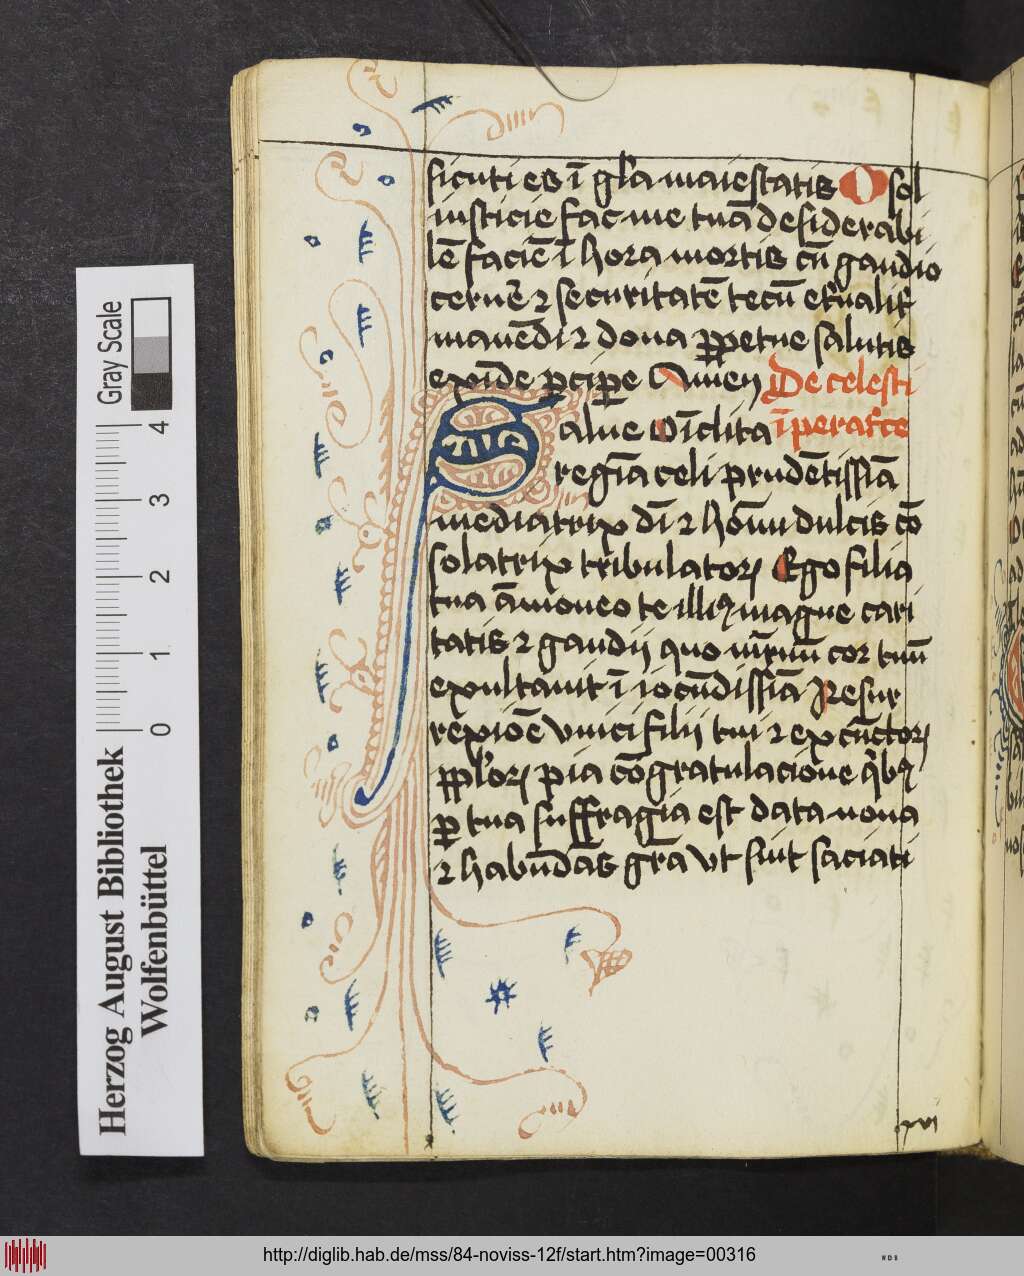 sicuti es ī gl'a maiestatis O sol
iusticie fac me tuā desiderabi
lē faciē ī hora mortis cū gaudio
cernē ⁊ securitatē tecū et'nalit'
manēdi ⁊ dona ꝑpetue salutis
exīde ꝑciꝑe Amen De celesti
Salue O īclita īperat'ce
regīa celi prudētissīa
mediatrix dī ⁊ hoīm dulcis cō
solatrix tribulatoꝝ Ego filia
tua āmoneo te illiꝰ magne cari
tatis ⁊ gaudij quo
cor tuū
exultauit ī iocūdissīa Resur
rexiōe vnici filij tui ⁊ ex cūctoꝝ
ppl'oꝝ pia cōgratulacione q'bꝫ
ꝑ tua suffragia est data noua
⁊ habūdās gr̄a vt sint saciati
xvi
Herzog August Bibliothek
Wolfenbüttel
0 1 2 3 4
Gray Scale
http://diglib.hab.de/mss/84-noviss-12f/start.htm?image=00316